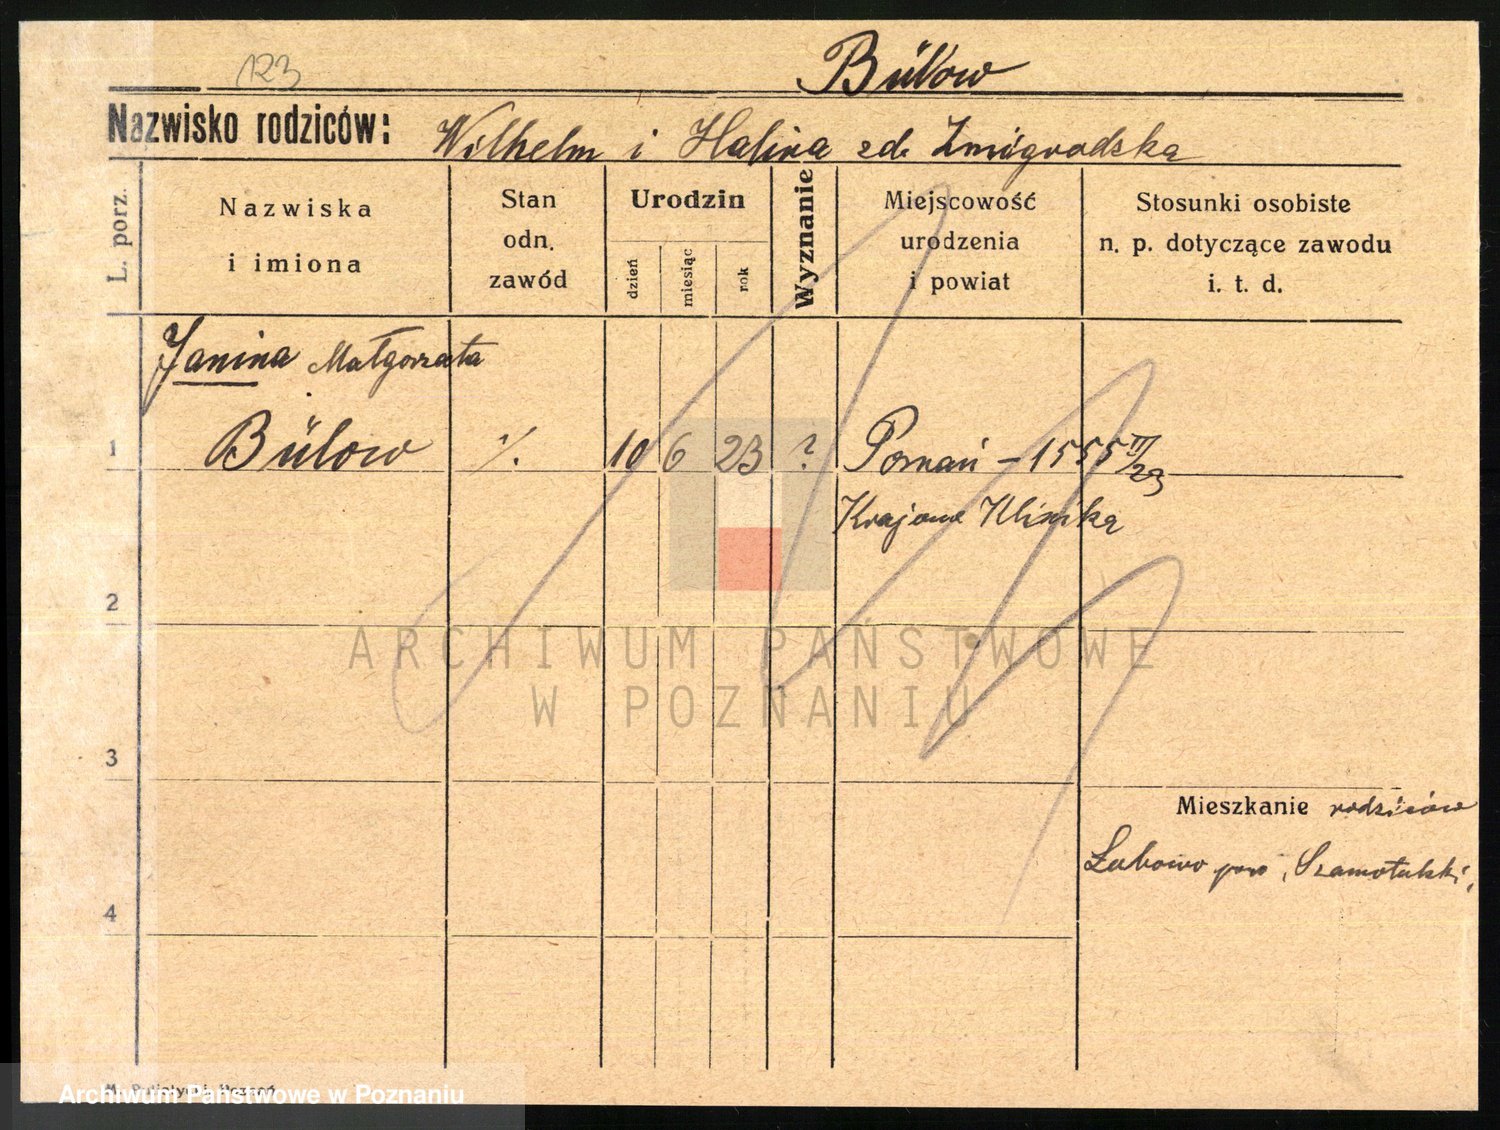 123
Bülow
Nazwisko rodziców: Wilhelm i Halina zd. Żmigrodzka
L. porz.
Nazwiska
i imiona
Stan
odn.
zawód
Urodzin
dzień
miesiąc
rok
Wyznanie
Miejscowość
urodzenia
i powiat
Stosunki osobiste
n. p. dotyczące zawodu
i. t. d.
Janina Małgorzata
1 Bülow ./. 10 6 23 ? Poznań – 1555 II/23
Krajowa Klinika
2
ARCHIWUM PAŃSTWOWE
W POZNANIU
3
Mieszkanie rodziców
Lubowo pow. Szamotulski,
4
Archiwum Państwowe w Poznaniu